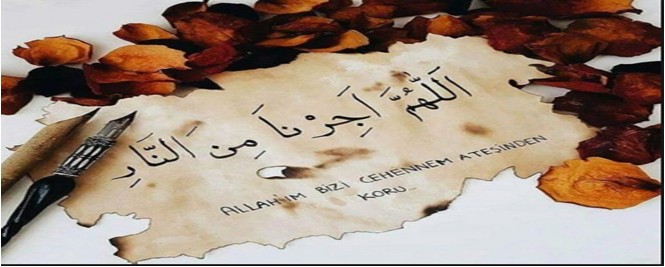 اَللّٰهُمَّ اَجِرْنَا مِنَ النَّارِ
ALLAH'IM BİZİ CEHENNEM ATEŞİNDEN
KORU..